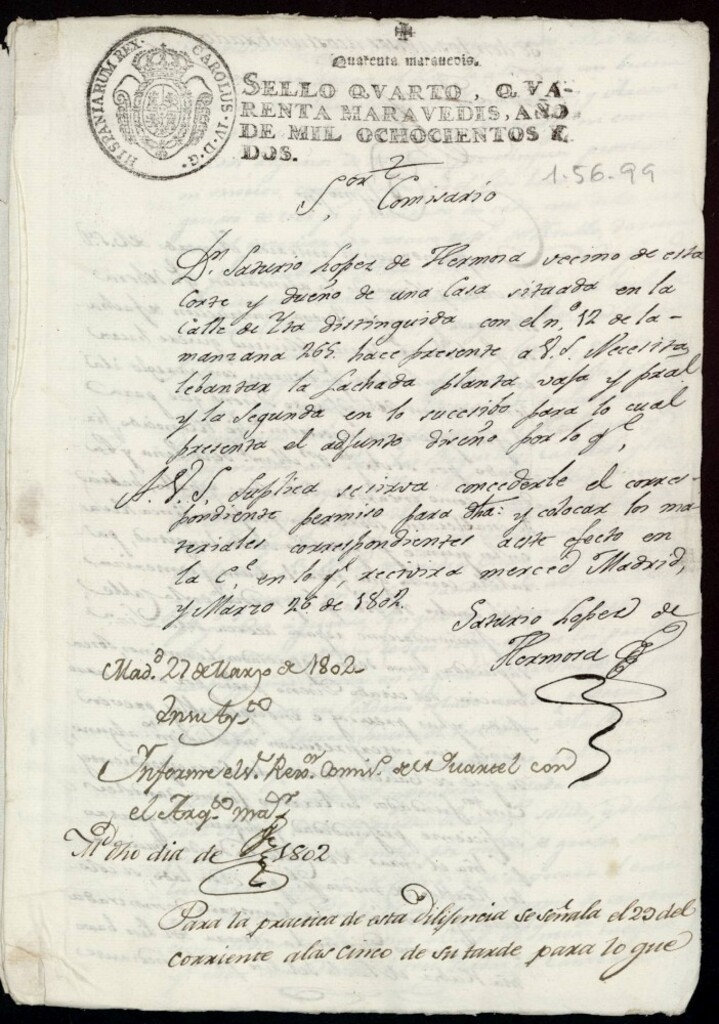 HISPANIARUM REX. CAROLUS. IV. D. G.
Quarenta maravedis.
SELLO QVARTO, QVA-
RENTA MARAVEDIS, AÑO
DE MIL OCHOCIENTOS Y
DOS.
1-56-99
S.or Comisario
D.n Saturio Lopez de Hermosa vecino de esta
Corte y dueño de una Casa situada en la
Calle de distinguida con el n.o 12 de la
manzana 265. hace presente a V.S. Necesita
lebantar la fachada planta vaja y pral
y la segunda en lo sucesibo para lo cual
presenta el adjunto diseño por lo q.e
A V.S. Suplica se sirva concederle el corres-
pondiente permiso para dha: y colocar los ma-
teriales correspondientes a este efecto en
la C.e en lo q.e recivira merced Madrid,
y Marzo 26 de 1802.
Saturio Lopez de
Hermosa
Mad.d 27 de Marzo de 1802.
en su Ay.to
Informe el S.r Rexi.or Comis.o del Quartel con
el Arq.to ma.or
M.d dho dia de 1802
Para la practica de esta Dilijencia se señala el 29 del
corriente a las cinco de su tarde para lo que